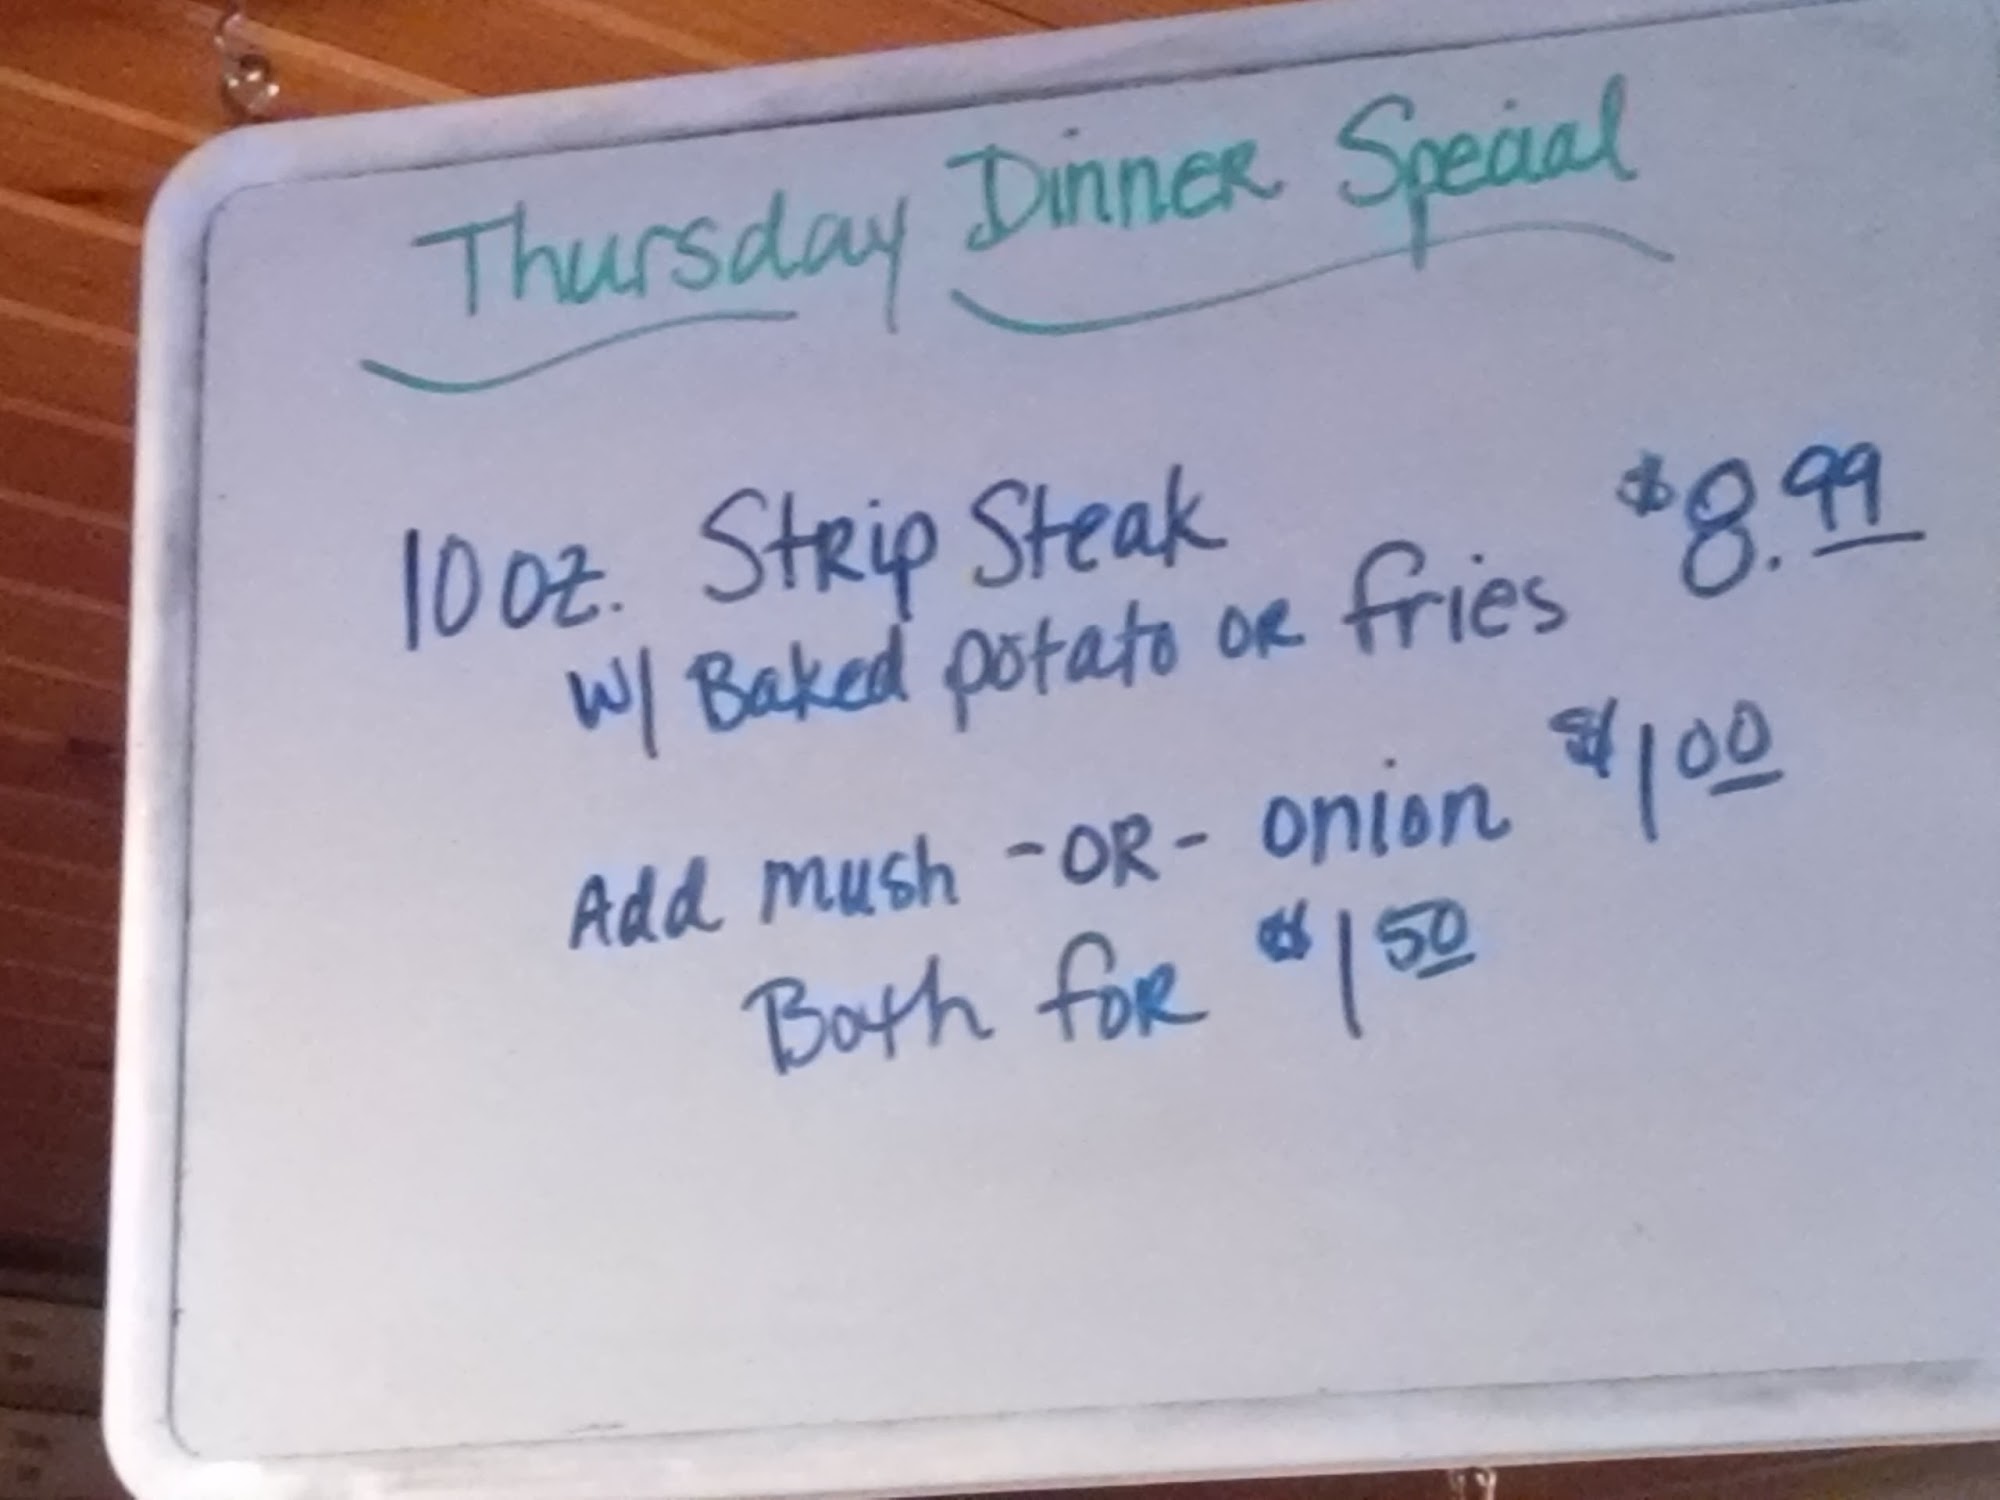 Thursday Dinner Special
10 oz. Strip Steak $8.99
w/ Baked potato or fries
Add mush -OR- onion $1 00
Both for $1 50